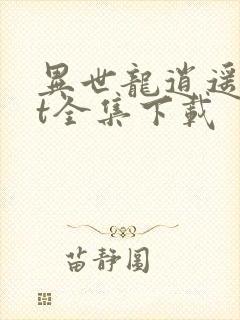 異世龍逍遥
t全集下載
苗靜圓